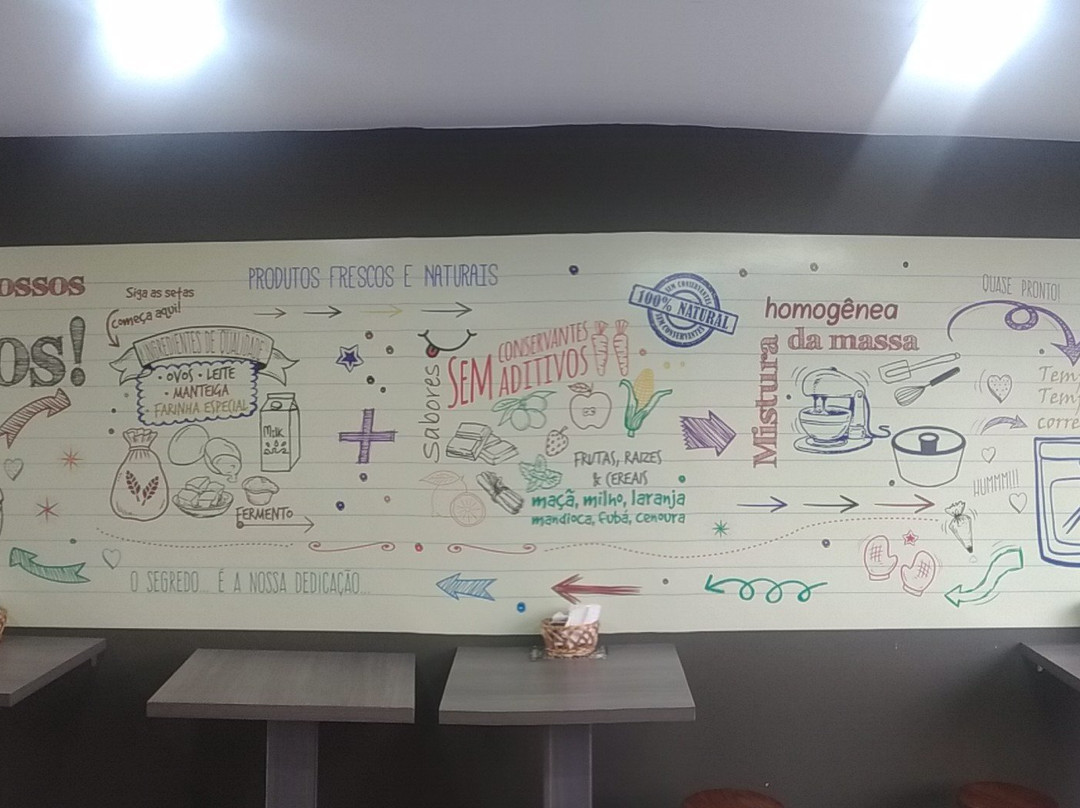 OSSOS
OS!
Siga as setas
começa aqui!
INGREDIENTES DE QUALIDADE
• OVOS • LEITE
• MANTEIGA
• FARINHA ESPECIAL
Milk
FERMENTO
PRODUTOS FRESCOS E NATURAIS
Sabores
SEM CONSERVANTES
ADITIVOS
SEM CONSERVANTES
100% NATURAL
SEM CONSERVANTES
FRUTAS, RAIZES
& CEREAIS
maçã, milho, laranja
mandioca, fubá, cenoura
Mistura
homogênea
da massa
QUASE PRONTO!
Tem
Tem
corre
HUMMM!!!
O SEGREDO... É A NOSSA DEDICAÇÃO...